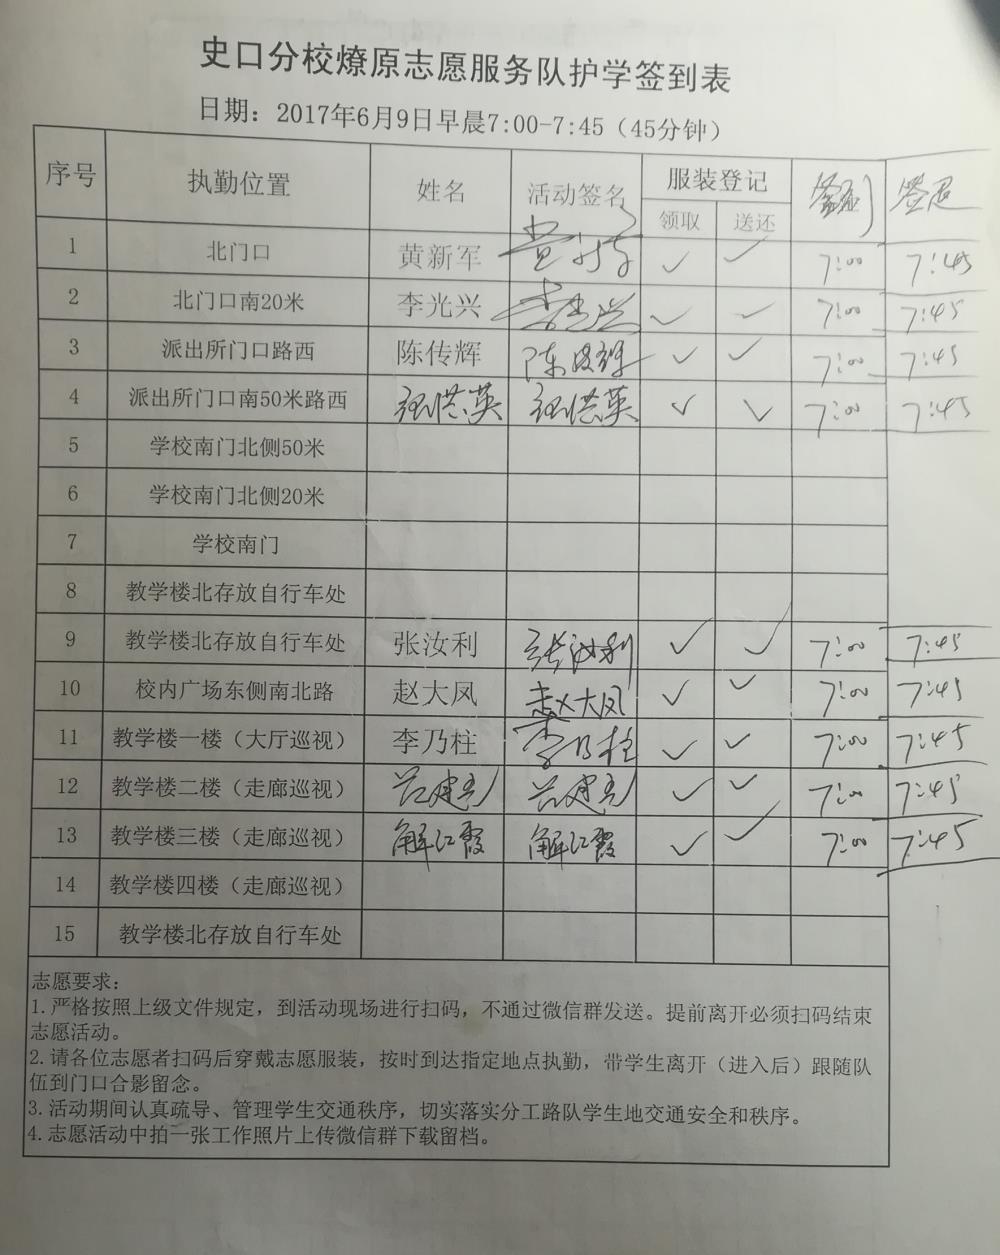 史口分校燎原志愿服务队护学签到表
日期：2017年6月9日早晨7:00-7:45（45分钟）
序号 执勤位置 姓名 活动签名 服装登记 签到 签退
领取 送还
1 北门口 黄新军 ✓ ✓ 7:00 7:45
2 北门口南20米 李光兴 李光兴 ✓ ✓ 7:00 7:45
3 派出所门口路西 陈传辉 陈传辉 ✓ ✓ 7:00 7:45
4 派出所门口南50米路西 ✓ ✓ 7:00 7:45
5 学校南门北侧50米
6 学校南门北侧20米
7 学校南门
8 教学楼北存放自行车处
9 教学楼北存放自行车处 张汝利 张汝利 ✓ ✓ 7:00 7:45
10 校内广场东侧南北路 赵大凤 赵大凤 ✓ ✓ 7:00 7:45
11 教学楼一楼（大厅巡视） 李乃柱 李乃柱 ✓ ✓ 7:00 7:45
12 教学楼二楼（走廊巡视） ✓ ✓ 7:00 7:45
13 教学楼三楼（走廊巡视） 解江霞 解江霞 ✓ ✓ 7:00 7:45
14 教学楼四楼（走廊巡视）
15 教学楼北存放自行车处
志愿要求：
1.严格按照上级文件规定，到活动现场进行扫码，不通过微信群发送。提前离开必须扫码结束
志愿活动。
2.请各位志愿者扫码后穿戴志愿服装，按时到达指定地点执勤，带学生离开（进入后）跟随队
伍到门口合影留念。
3.活动期间认真疏导、管理学生交通秩序，切实落实分工路队学生地交通安全和秩序。
4.志愿活动中拍一张工作照片上传微信群下载留档。